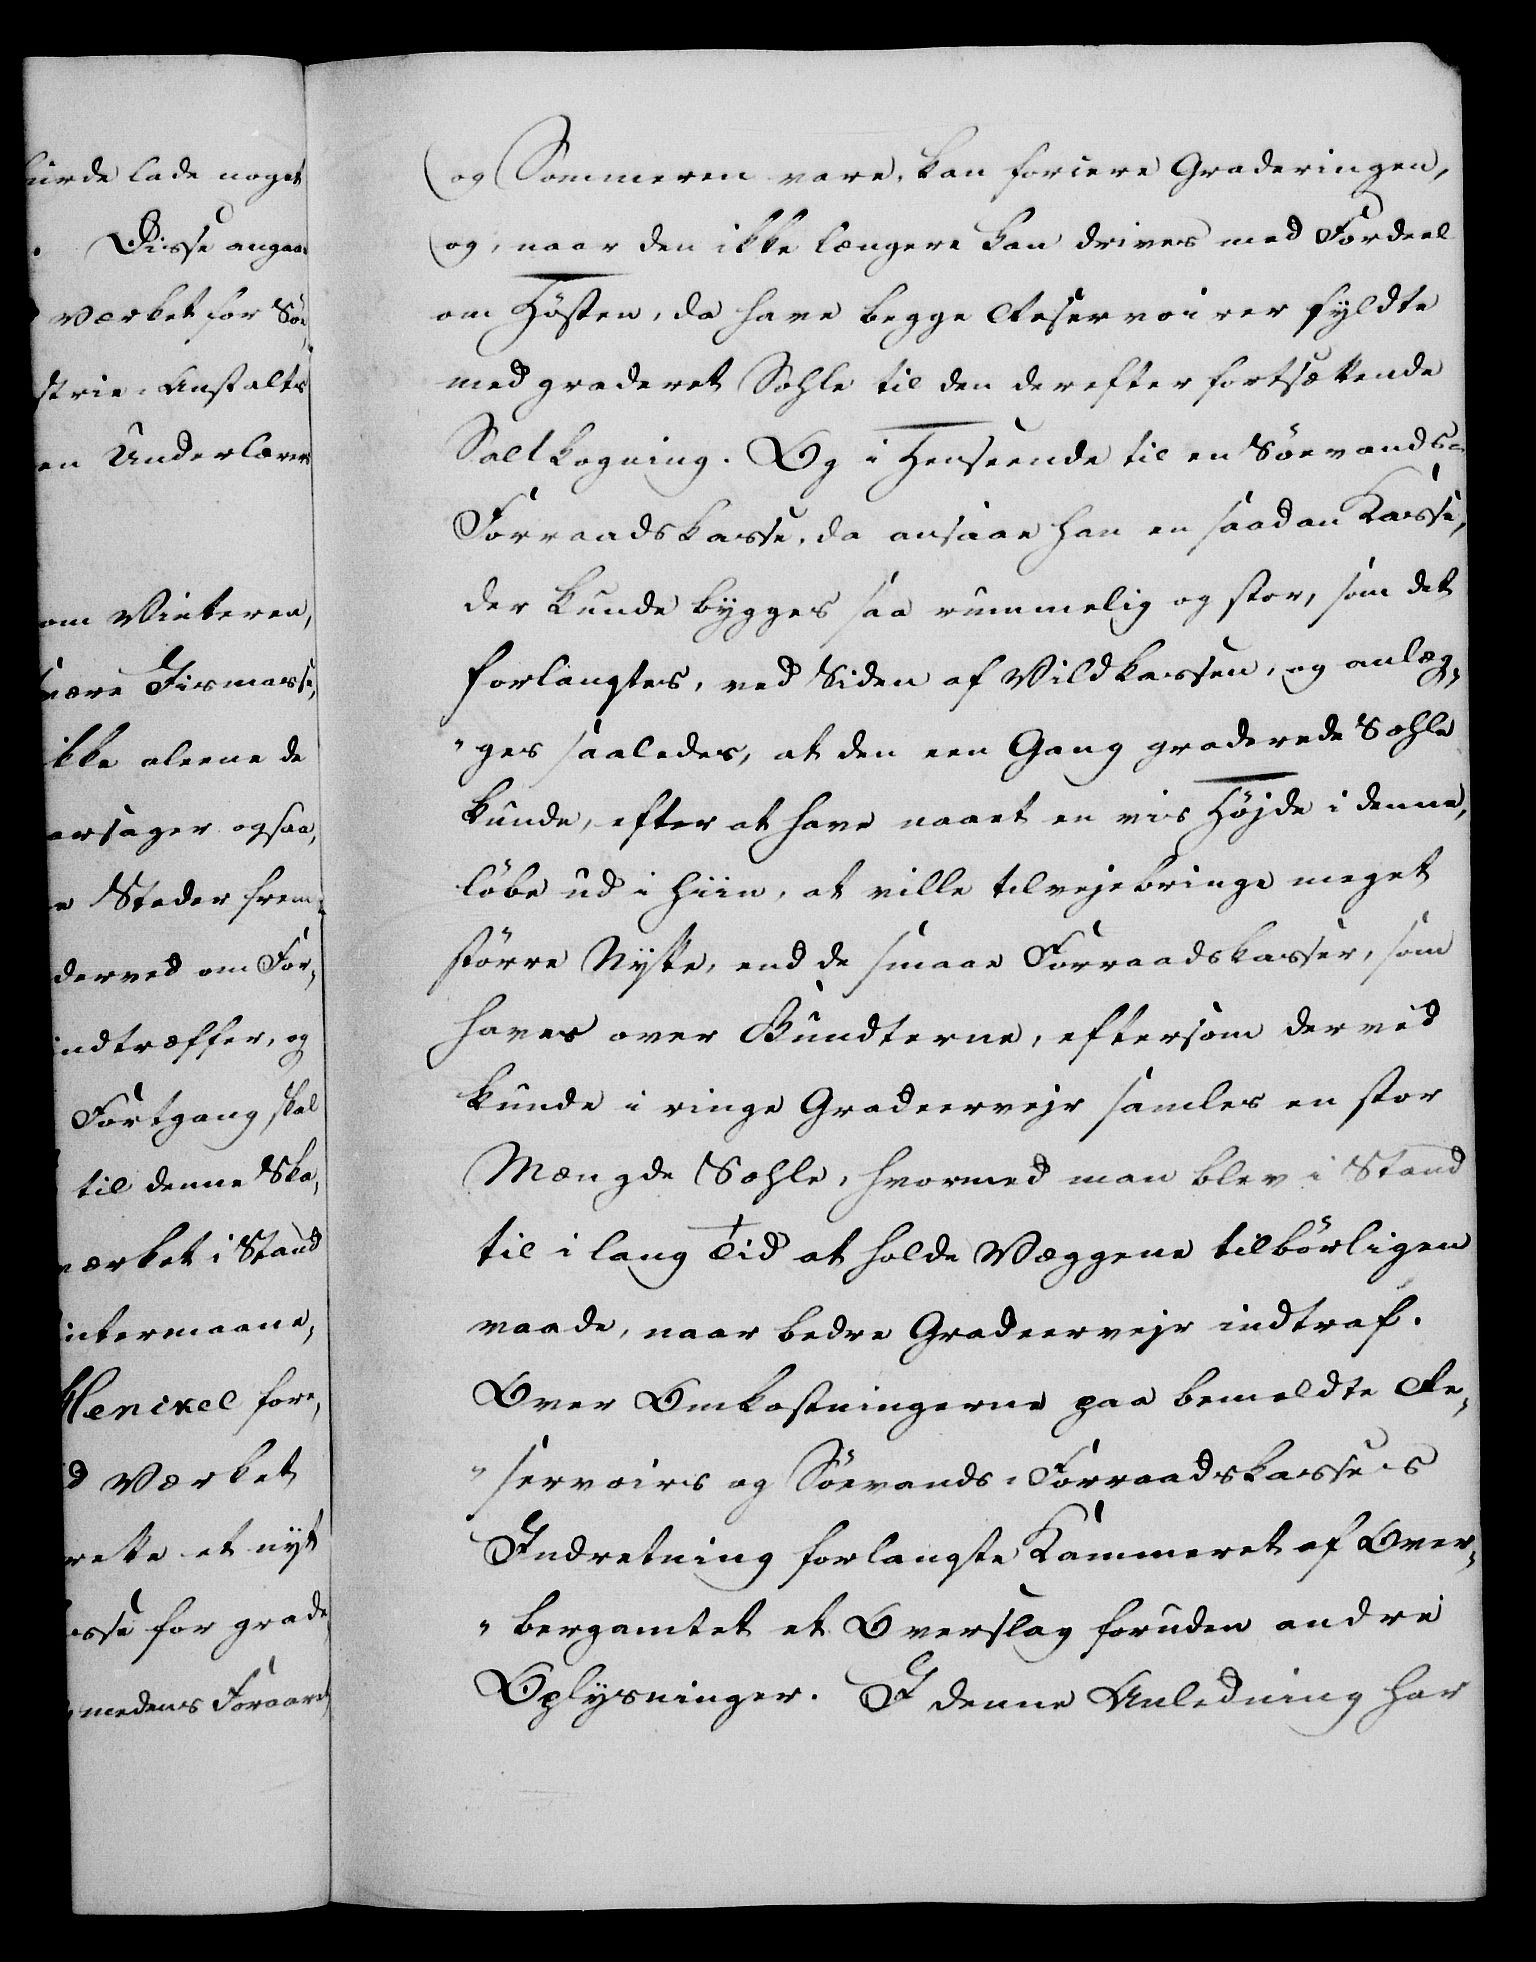 urde lade noget
. Disse angaae
værket for Söe
strie-Anstalts
en Underlærer
om Vinteren,
være Iismasse,
ikke aleene de
arsager ogsaa,
e Steder frem-
derved om For-
indtræffer, og
Fortgang skal
til denne Ska-
værket i Stand
intermaane-
Henckel fore-
d Værket
rette et nyt
asse for grade
medens Foraaret
og Sommeren vare, kan forcere Graderingen,
og, naar den ikke længere kan drives med Fordeel
om Hösten, da have begge Reservoirer fyldte
med graderet Sohle til den derefter fortsættende
Saltkogning. Og i Henseende til en Söevands-
Forraadskasse, da ansaae han en saadan Kasse,
der kunde bygges saa rummelig og stor, som det
forlangtes, ved Siden af Vildkassen, og anlæg-
ges saaledes, at den een Gang graderede Sohle
kunde, efter at have naaet en vis Höjde i denne,
löbe ud i hiin, at ville tilvejebringe meget
större Nytte, end de smaae Forraadskasser, som
haves over Bundterne, eftersom derved
kunde i ringe Gradeervejr samles en stor
Mængde Sohle, hvormed man blev i Stand
til i lang Tid at holde Væggene tilbörligen
vaade, naar bedre Gradeervejr indtraf.
Over Omkostningerne paa bemeldte Re-
servoirs og Söevands-Forraadskasses
Indretning forlangte Kammeret af Over-
bergamtet et Overslag foruden andre
Oplysninger. I denne Anledning har